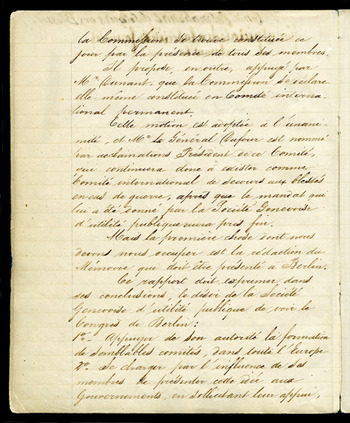 la Commission se trouve constituée ce
jour par la présence de tous ses membres.
Il propose en outre, appuyé par
Mr Dunant, que la Commission se déclare
elle même constituée en Comité interna-
tional permanent.
Cette motion est adoptée à l'unani-
mité, et Mr le Général Dufour est nommé
par acclamations Président de ce Comité,
qui continuera donc à exister comme
Comité international de secours aux blessés
en cas de guerre, après que le mandat qui
lui a été donné par la Société Genevoise
d'utilité publique aura pris fin.
Mais la première chose dont nous
devons nous occuper est la rédaction du
Mémoire qui doit être présenté à Berlin.
Ce rapport doit exprimer, dans
ses conclusions, le désir de la Société
Genevoise d'utilité publique de voir le
Congrès de Berlin:
1o- Appuyer de son autorité la formation
de semblables comités, dans toute l'Europe
2o- se charger par l'influence de ses
membres de présenter cette idée aux
Gouvernements, en sollicitant leur appui,